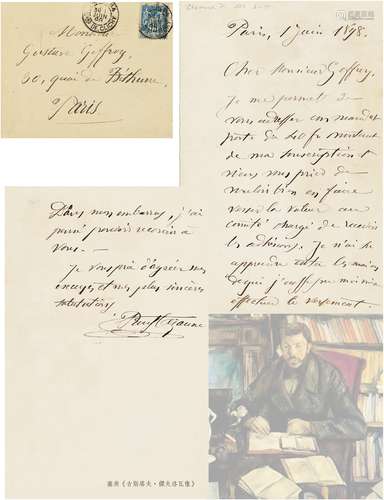 Monsieur
Gustave Geffroy
30, quai de Béthune
Paris
Paris, 1 juin 1898.
Cher Monsieur Geffroy,
Je me permet de
vous adresser un mandat
poste de
de ma souscription et
vous prie de
vouloir bien en faire
verser la valeur au
comité chargé de recevoir
les adhésions. Je n'ai
effectuer le versement.
Dans mon embarras, j'ai
pensé pouvoir recourir à
vous.
Je vous prie d'agréer mes
excuses et mes plus sincères
salutations
Paul Cézanne
塞尚《古斯塔夫·傑夫洛瓦像》